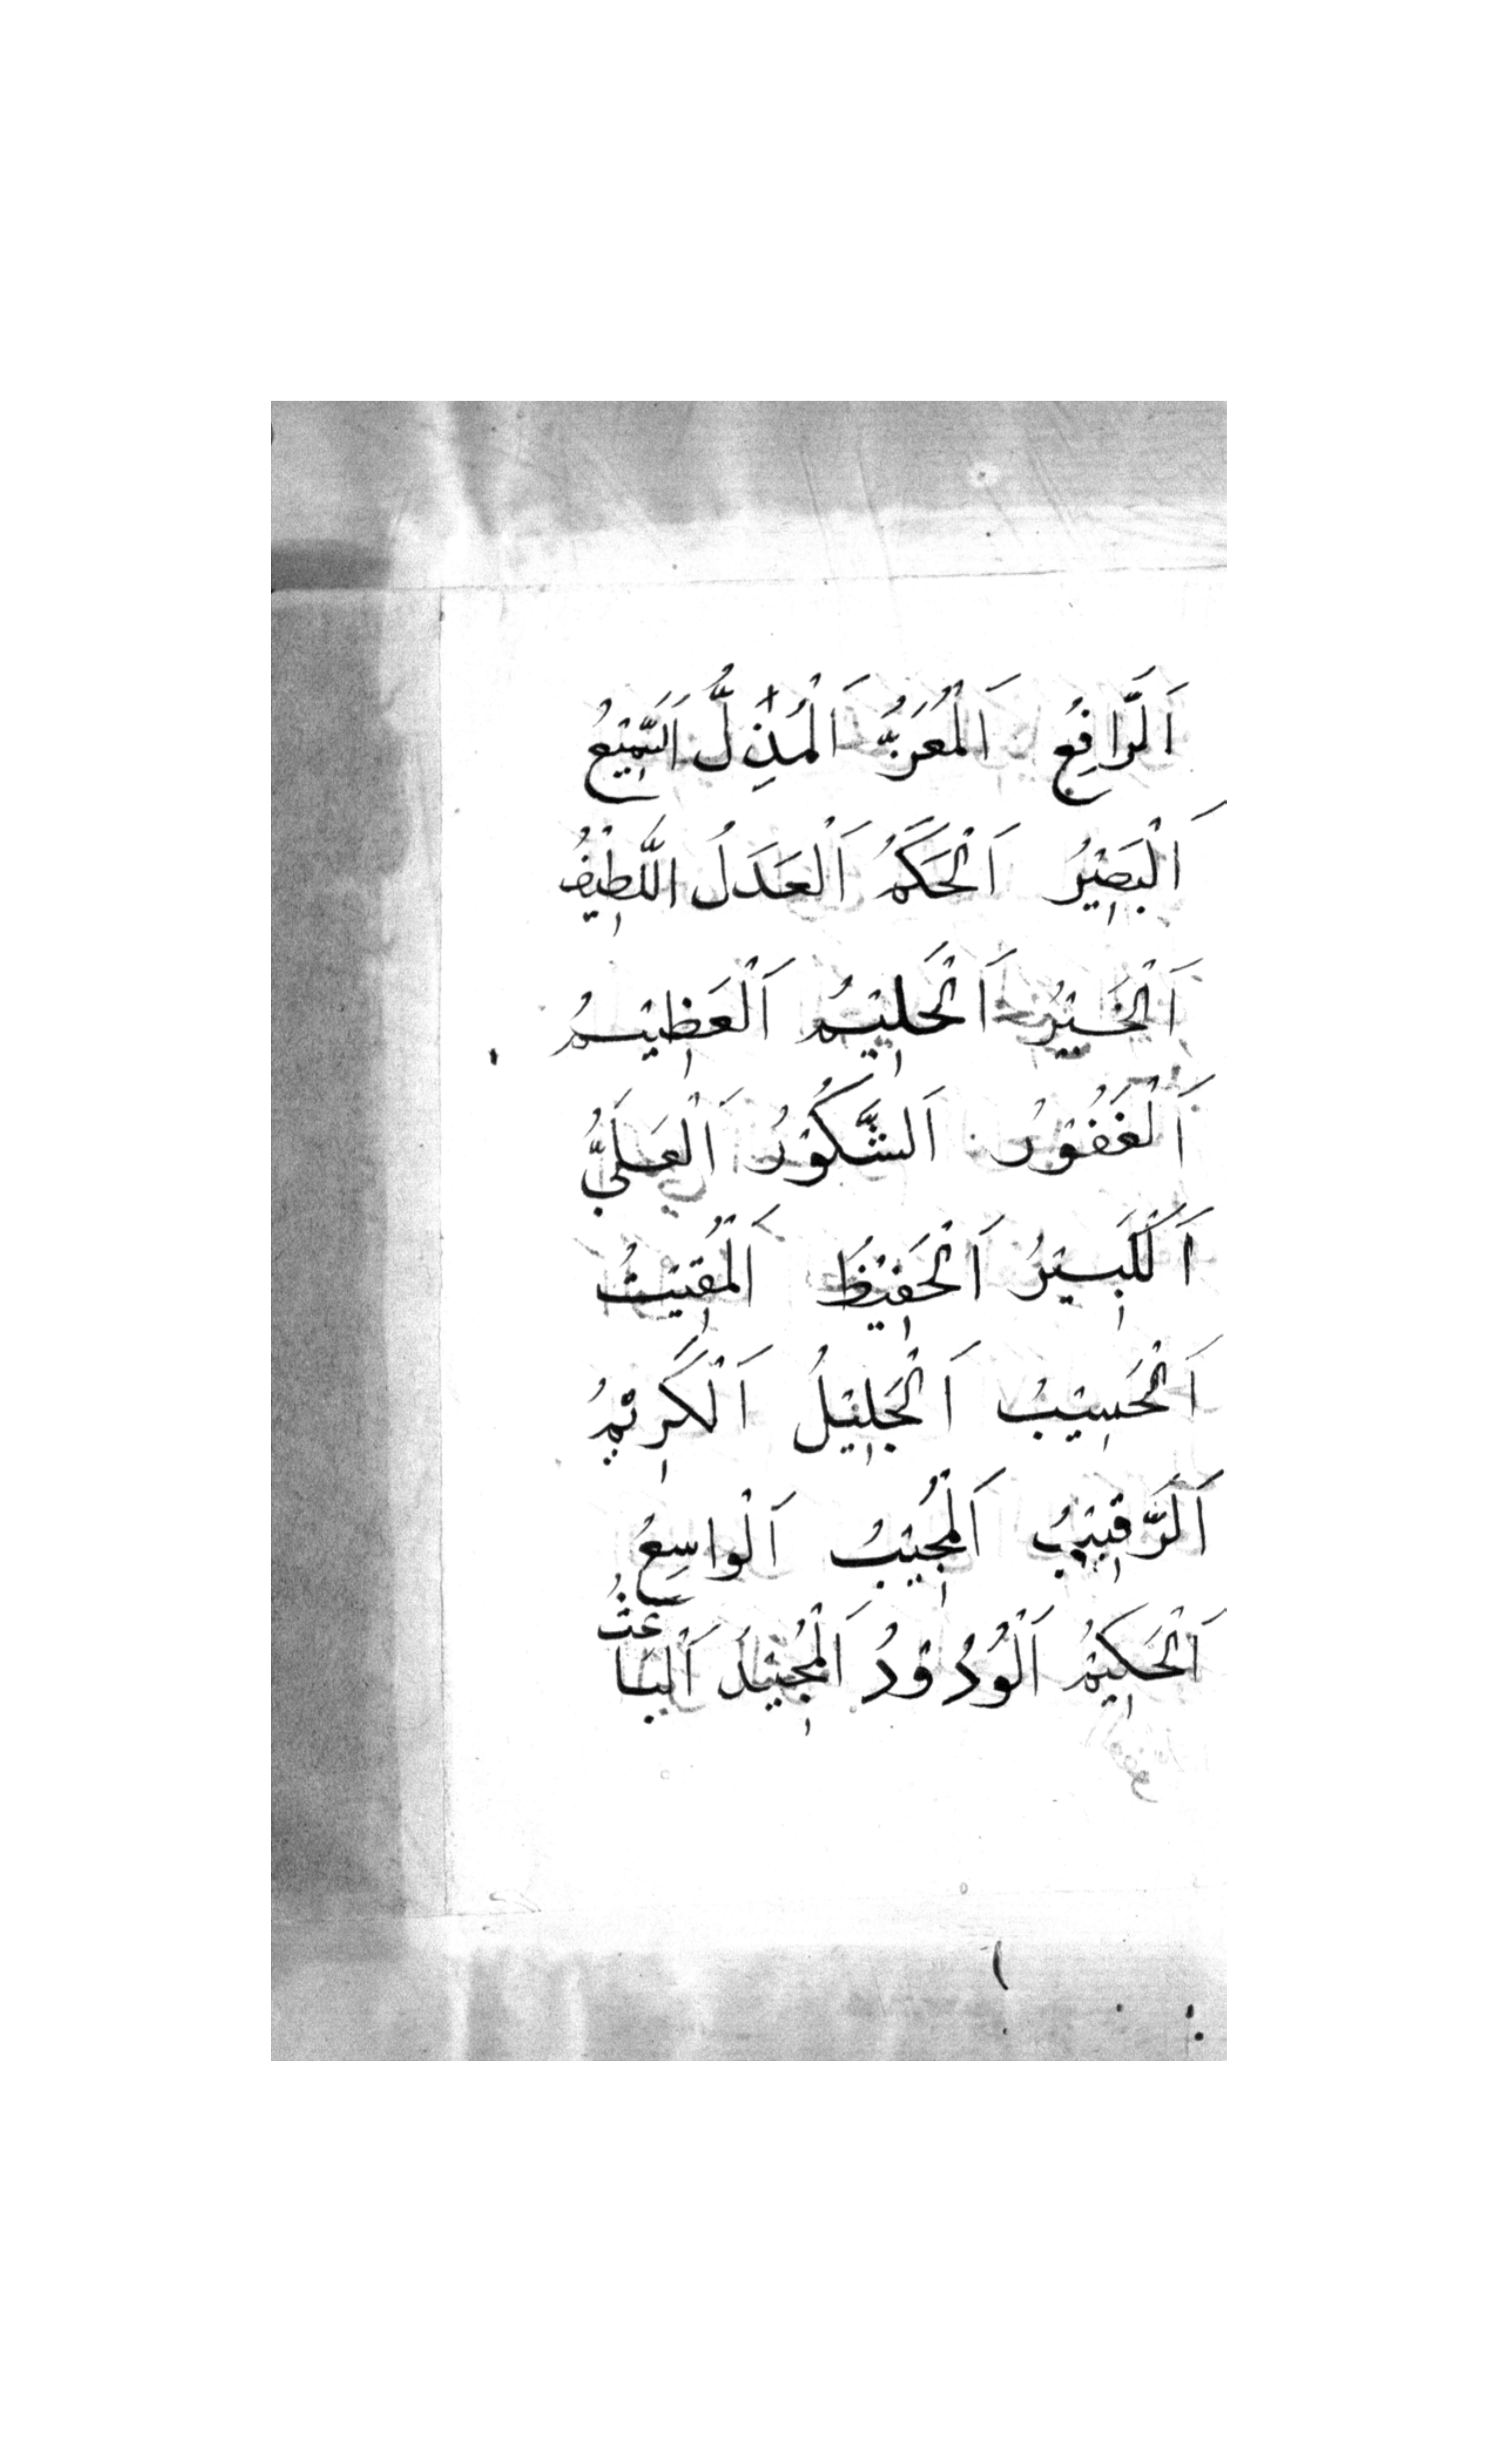 اَلرَّافِعُ اَلْمُعَزُّ اَلْمُذِلُّ اَلسَّمِيْعُ
اَلْبَصِيْرُ اَلْحَكَمُ اَلْعَدَلُ اللَّطِيْفُ
اَلْخَبِيْرُ اَلْحَلِيْمُ اَلْعَظِيْمُ
اَلْغَفُوْرُ اَلشَّكُوْرُ اَلْعَلَيُّ
اَلْكَبِيْرُ اَلْحَفِيْظُ اَلْمُقِيْتُ
اَلْحَسِيْبُ اَلْجَلِيْلُ اَلْكَرِيْمُ
اَلرَّقِيْبُ اَلْمُجِيْبُ اَلْوَاسِعُ
اَلْحَكِيْمُ اَلْوُدُوْدُ اَلْمُجِيْدُ اَلْبَاعثُ